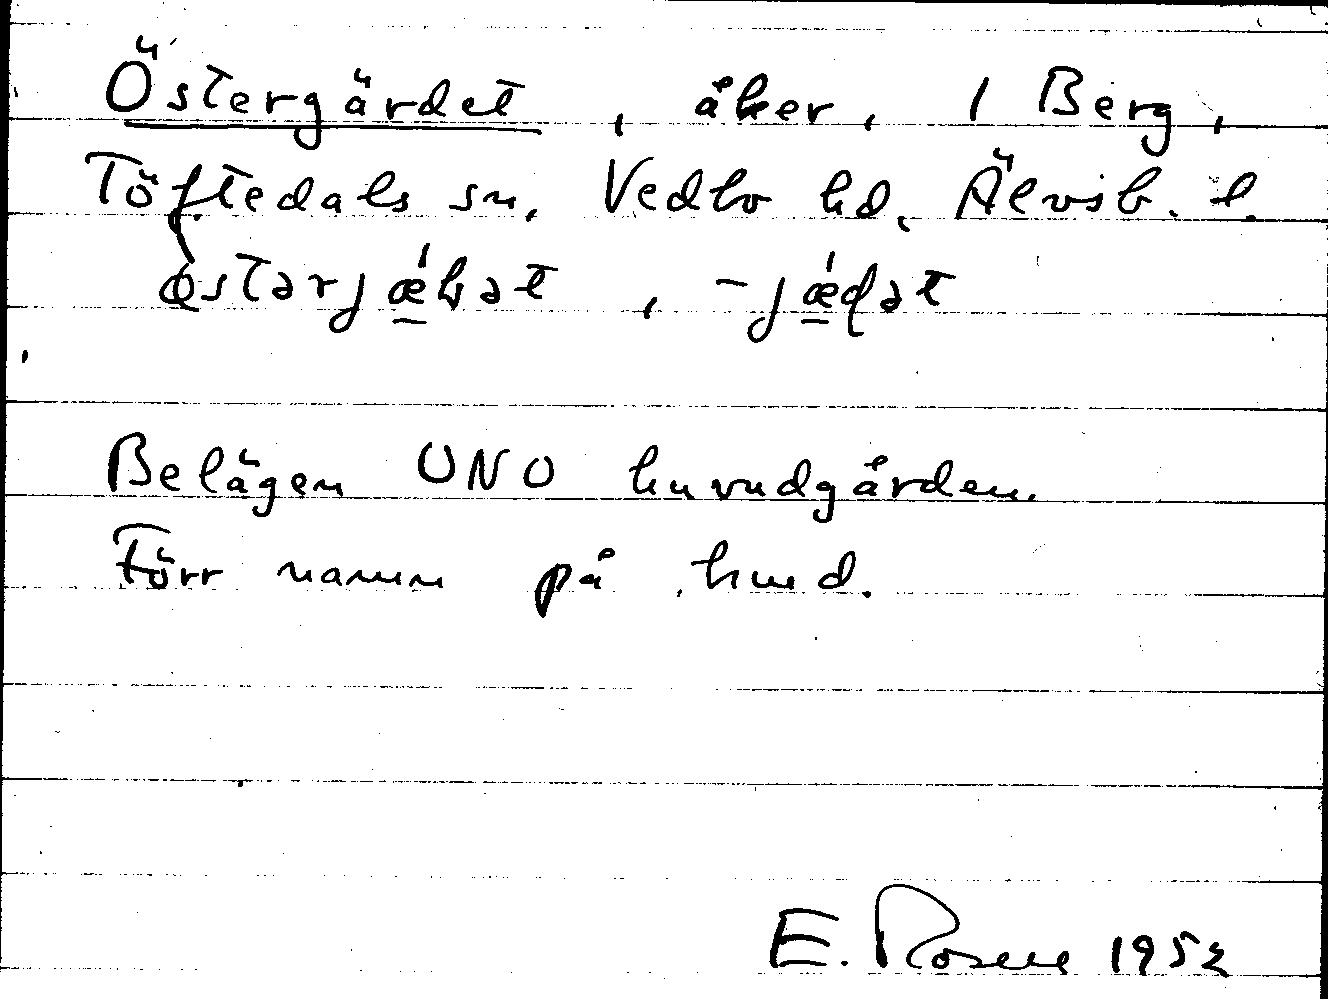 Östergärdet, åker, 1 Berg,
Töftedals sn, Vedbo hd, Älvsb. l.
østərjǽ̠ɽət, -jǽ̠ɖət
Belägen ONO huvudgården.
Förr namn på hmd.
E. Rosen 1952